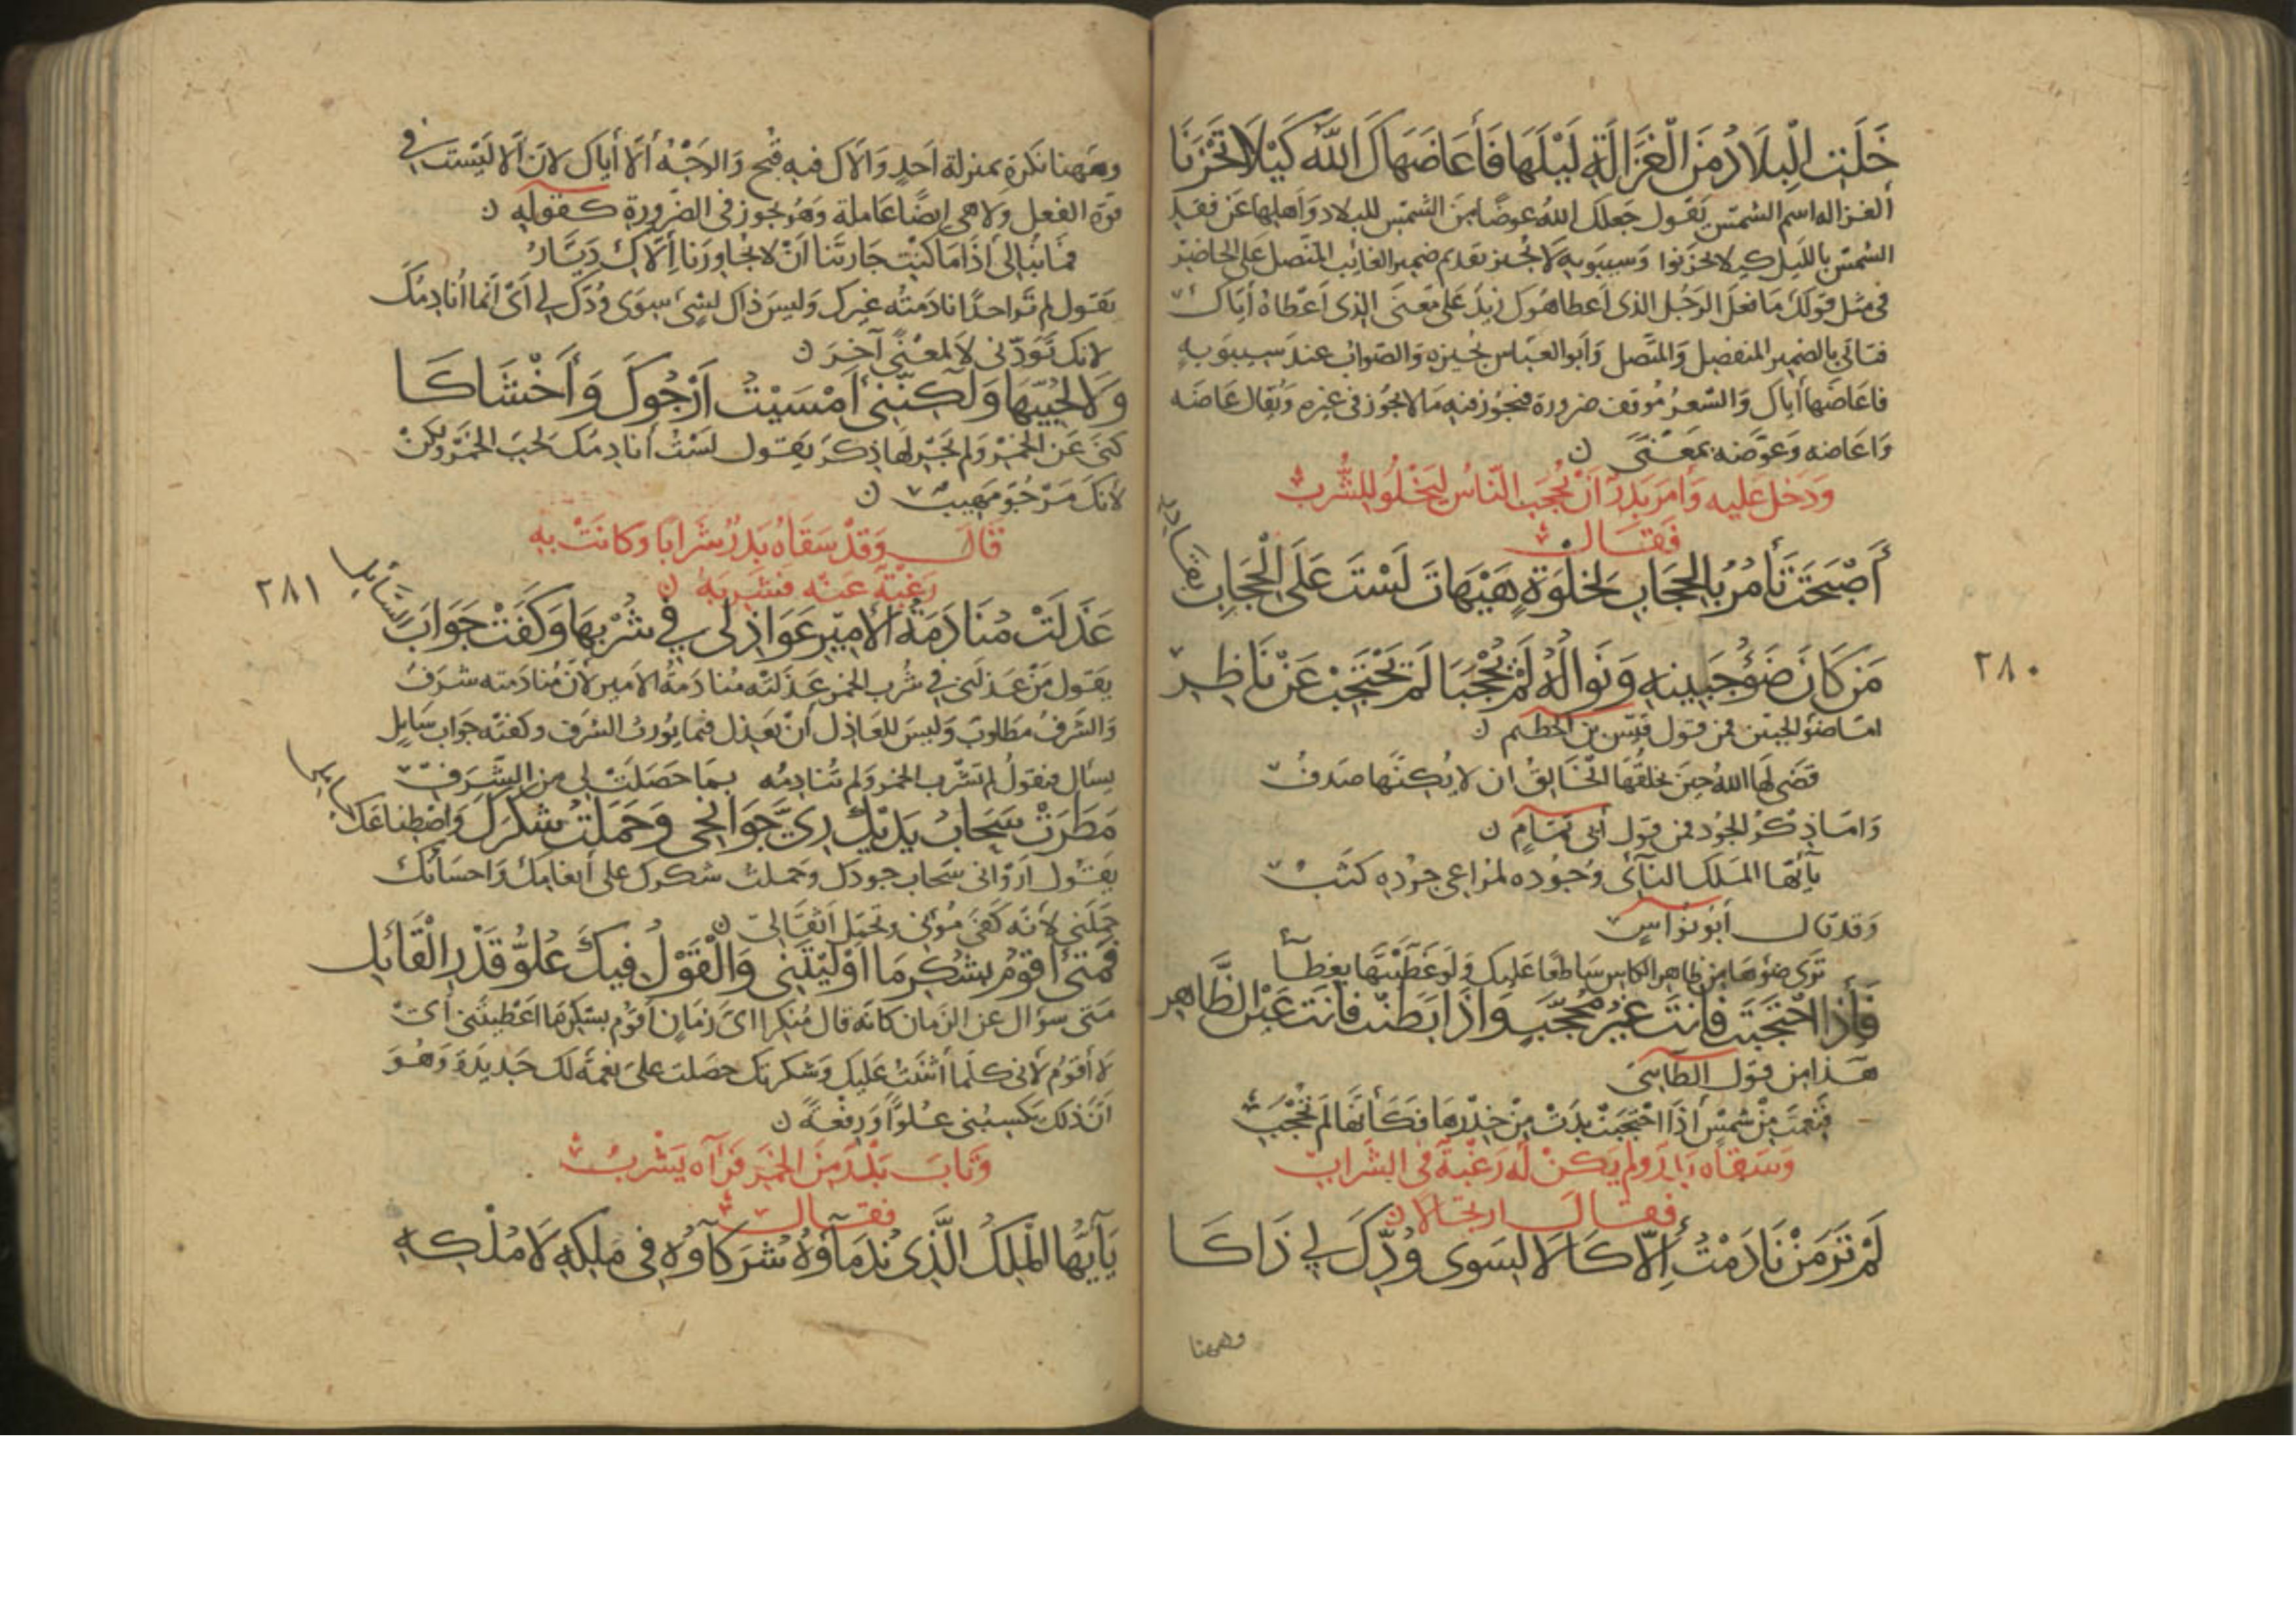 خَلَتِ الْبِلَادُ مِنَ الْغَزَالَةِ لَيْلَهَا فَأَعَاضَهَاكَ اللَّهُ كَيْلَا تَحْزَنَا
الغزاله اسم الشمس يقول جعلك الله عوضًا من الشمس للبلاد وأهلها عن فقد
الشمس بالليل كيلا يحزنوا وسيبويه لا يجيز تقديم ضمير الغائب المتصل على الحاضر
في مثل قولك ما فعل الرجل الذي أعطاهوك زيد على معنى الذي أعطاه أياك
فتاتي بالضمير المنفصل والمتصل وأبو العباس يجيزه والصواب عند سيبويه
فاعاضها أياك والشعر موقف ضرورة فيجوز فيه ما لا يجوز في غيره ويقال عاضه
وأعاضه وعوّضه بمعنى ن
ودخل عليه وأمر بدر أن يحجب الناس ليخلو للشرب
فقال
أَصْبَحْتَ تَأْمُرُ بِالْحِجَابِ لِخَلْوَةٍ هَيْهَاتَ لَسْتَ عَلَى الْحِجَابِ بقادر
٢٨٠
مَنْ كَانَ ضَوْءُ جَبِينِهِ وَنَوَالُهُ لَمْ يُحْجَبَا لَمْ يَحْتَجِبْ عَنْ نَاظِرِ
امّا ضوء الجبين فمن قول قيس بن الخطيم ن
قضى لها الله حين يخلقها الخالق ان لا يكنّها صدف
وامّا ذكر الجود فمن قول أبي تمام ن
يأيها الملك النآئي وجوده لمراعي جوده كثب
وقد قال أبو نواس
ترى ضوءها من ظاهر الكاس ساطعًا عليك ولو غطّيتها بغطآء
فَإِذَا احْتَجَبْتَ فَأَنْتَ غَيْرُ مُحَجَّبٍ وَإِذَا بَطَنْتَ فَأَنْتَ عَيْنُ الظَّاهِرِ
هذا من قول الطاىي
فنعمت من شمس إذا احتجبت بدت من خدرها فكأنها لم تحجب
وسقاه بدر ولم يكن له رغبة في الشراب
فقال ارتجالا ن
لَمْ تَرَ مَنْ نَادَمْتُ إِلَّاكَا لَا لِسِوَى وُدِّكَ لِي ذَاكَا
وههنا
وههنا نكرة بمنزلة أحد والاك فيه قبح والوجه ألا أياك لان ألا ليست في
قوة الفعل ولا هي ايضًا عاملة وهو يجوز في الضرورة كقوله ن
فما نبالي أذا ما كنت جارتنا ان لا يجاورنا إلّاك ديّار
يقول لم تر احدًا نادمته غيرك وليس ذاك لشيء سوى ودّك لي أي انما أنادمك
لانك تودّني لا لمعنًى آخر ن
وَلَا لِحُبِّيهَا وَلَكِنَّنِي أَمْسَيْتُ أَرْجُوكَ وَأَخْشَاكَا
كنى عن الخمر ولم يجر لها ذكر يقول لست أنادمك لحب الخمر ولكن
لانك مرجوّ مهيب ن
قال وقد سقاه بدر شرابا وكانت به
رغبة عنه فشربه ن
عَذَلَتْ مُنَادَمَةُ الْأَمِيرِ عَوَاذِلِي فِي شُرْبِهَا وَكَفَتْ جَوَابَ السَّائِلِ
٢٨١
يقول من عذلني في شرب الخمر عذلته منادمة الامير لأن منادمته شرف
والشرف مطلوب وليس للعاذل أن يعذل فيما يورث الشرف وكفته جواب سايل
يسأل فيقول لم تشرب الخمر ولم تنادمه بما حصلت لي من الشرف
مَطَرَتْ سَحَابُ يَدَيْكَ رِيَّ جَوَانِحِي وَحَمَلْتُ شُكْرَكَ وَاصْطِنَاعَكَ حاملي
يقول أرواني سحاب جودك وحملت شكرك على أنعامك واحسانك
حملني لأنه كفى مؤني وتحمل اثقالي ن
فَمَتَى أَقُومُ بِشُكْرِ مَا أَوْلَيْتَنِي وَالْقَوْلُ فِيكَ عُلُوُّ قَدْرِ الْقَائِلِ
متى سؤال عن الزمان كانه قال منكرا اي زمان أقوم بشكر ما اعطيتني أي
لا أقوم لأني كلما أثنيت عليك وشكرتك حصلت على نعمة لك جديدة وهو
انّ ذلك يكسبني علوًّا ورفعةً ن
وتاب بدر من الخمر فرآه يشرب
فقال
يَأَيُّهَا الْمَلِكُ الَّذِي نُدَمَآؤُهُ شُرَكَآؤُهُ فِي مِلْكِهِ لَا مُلْكِهِ